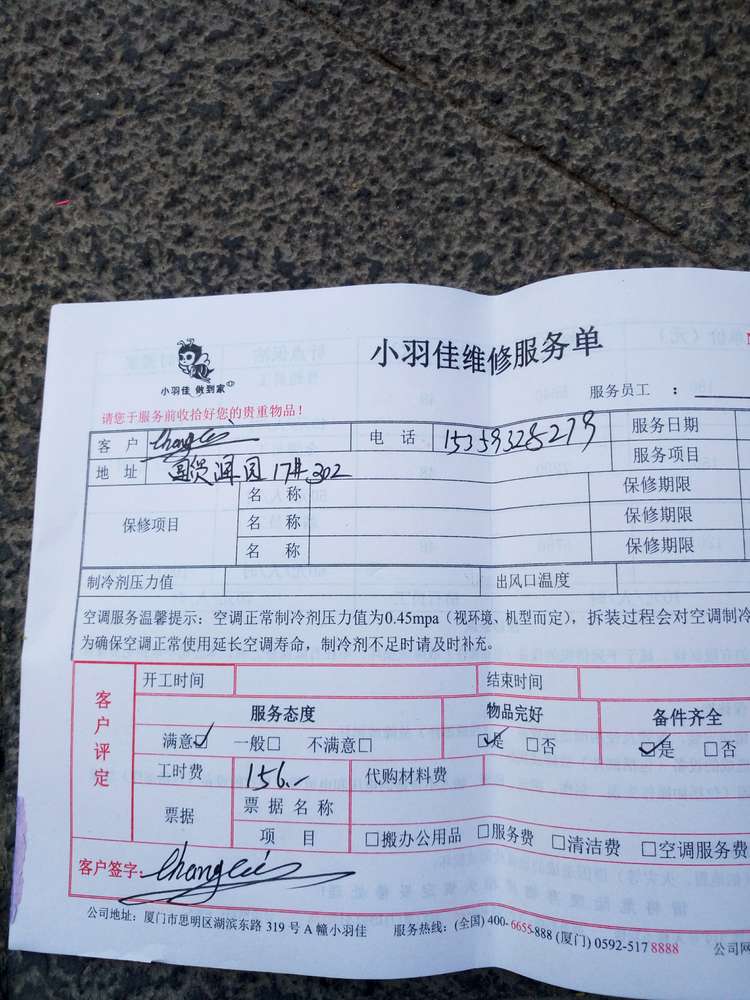 小羽佳 做到家
小羽佳维修服务单
服务员工：
请您于服务前收拾好您的贵重物品！
客户 changlei 电话 15359328279 服务日期
服务项目
地址 国贸润园17#302
保修项目 名称 保修期限
名称 保修期限
名称 保修期限
制冷剂压力值 出风口温度
空调服务温馨提示：空调正常制冷剂压力值为0.45mpa（视环境、机型而定），拆装过程会对空调制冷
为确保空调正常使用延长空调寿命，制冷剂不足时请及时补充。
客户评定
开工时间 结束时间
服务态度 物品完好 备件齐全
满意☑ 一般□ 不满意□ ☑是 □否 ☑是 □否
工时费 156.- 代购材料费
票据 票据名称
项目 □搬办公用品 □服务费 □清洁费 □空调服务费
客户签字: Changlei
公司地址：厦门市思明区湖滨东路 319 号 A 幢小羽佳 服务热线：(全国) 400-6655-888 (厦门) 0592-517 8888 公司网